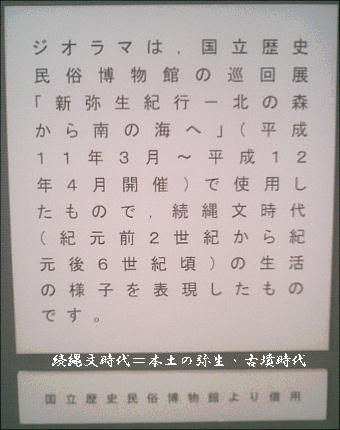 ジオラマは，国立歴史
民俗博物館の巡回展
「新弥生紀行－北の森
から南の海へ」（平成
１１年３月～平成１２
年４月開催）で使用し
たもので，続縄文時代
（紀元前２世紀から紀
元後６世紀頃）の生活
の様子を表現したもの
です。
続縄文時代＝本土の弥生、古墳時代
国立歴史民俗博物館より借用